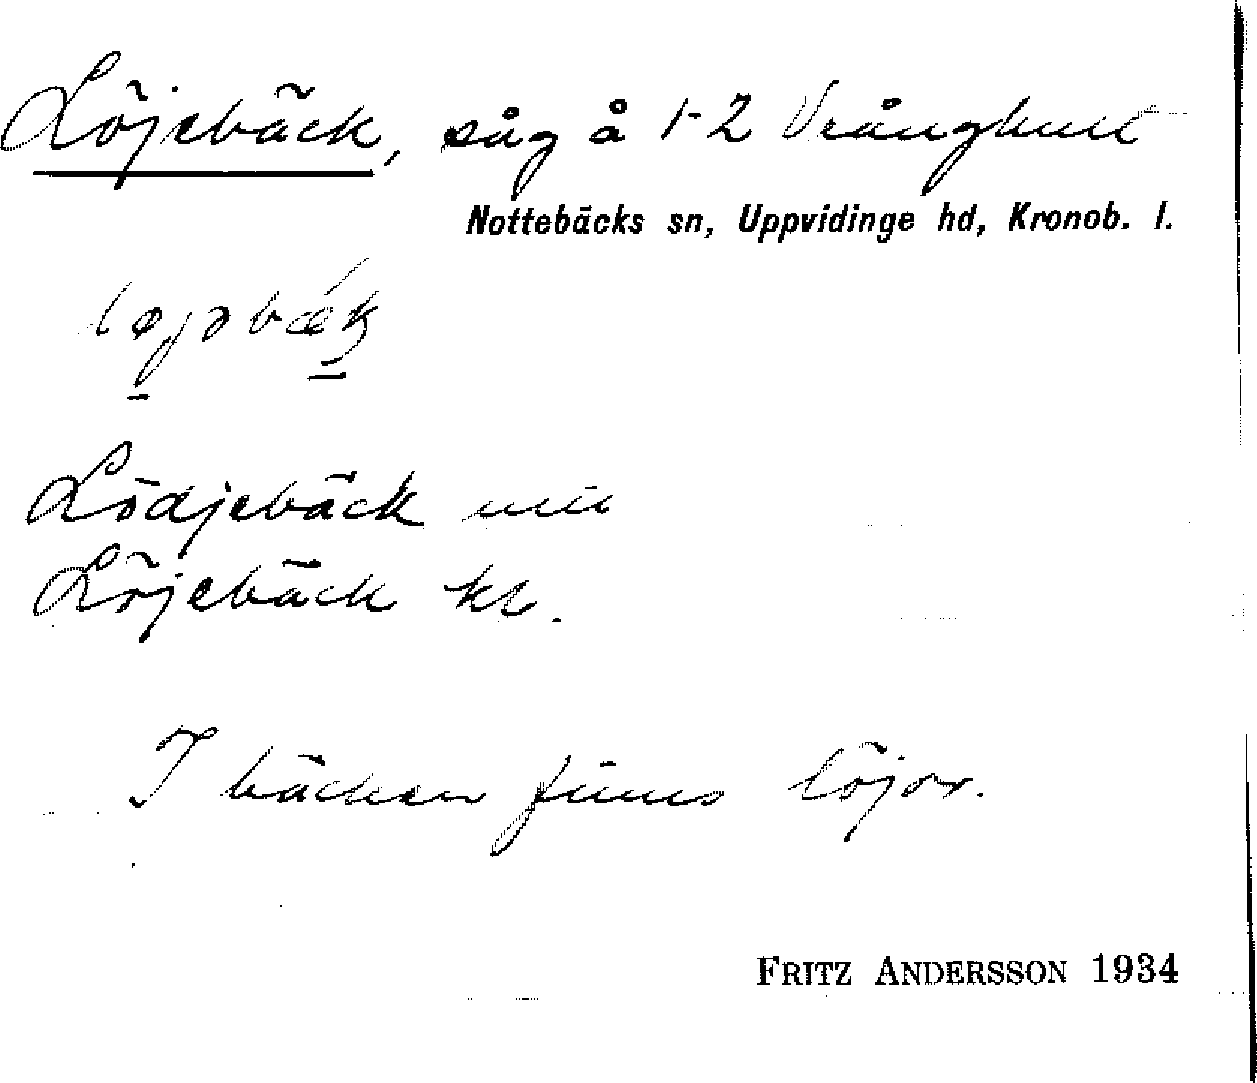 Löjebäck, såg å 1-2 Vrånghult
Nottebäcks sn, Uppvidinge hd, Kronob. l.
løjəbǽk
Lödjebäck
Löjebäck
I bäcken finns löjor.
FRITZ ANDERSSON 1934